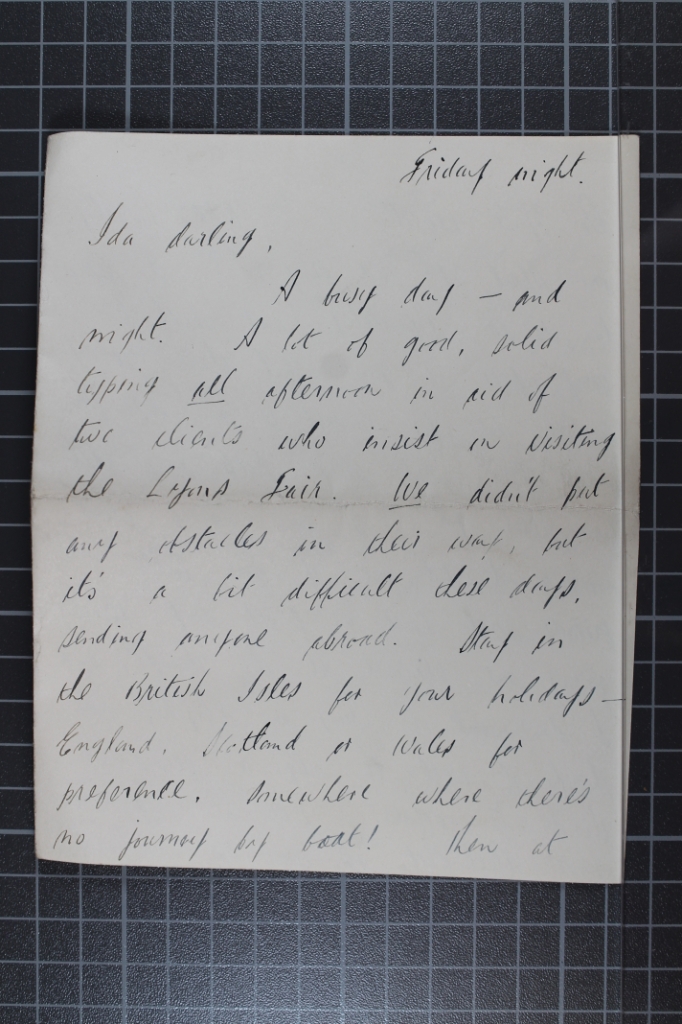 Friday night.
Ida darling,
A busy day — and
night. A lot of good, solid
typing all afternoon in aid of
two clients who insist on visiting
the Lyons Fair. We didn't put
any obstacles in their way, but
it's a bit difficult these days,
sending anyone abroad. Stay in
the British Isles for your holidays —
England, Scotland or Wales for
preference, somewhere where there's
no journey by boat! Then at